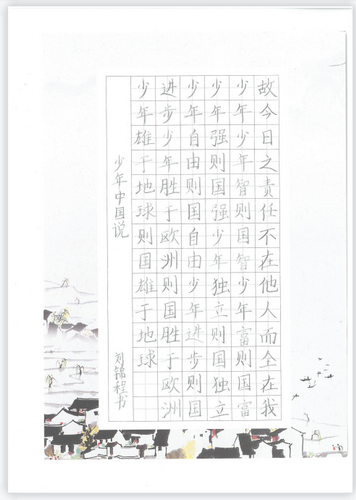 故今日之责任不在他人而全在我
少年少年智则国智少年富则国富
少年强则国强少年独立则国独立
少年自由则国自由少年进步则国
进步少年胜于欧洲则国胜于欧洲
少年雄于地球则国雄于地球
少年中国说
刘锦程书